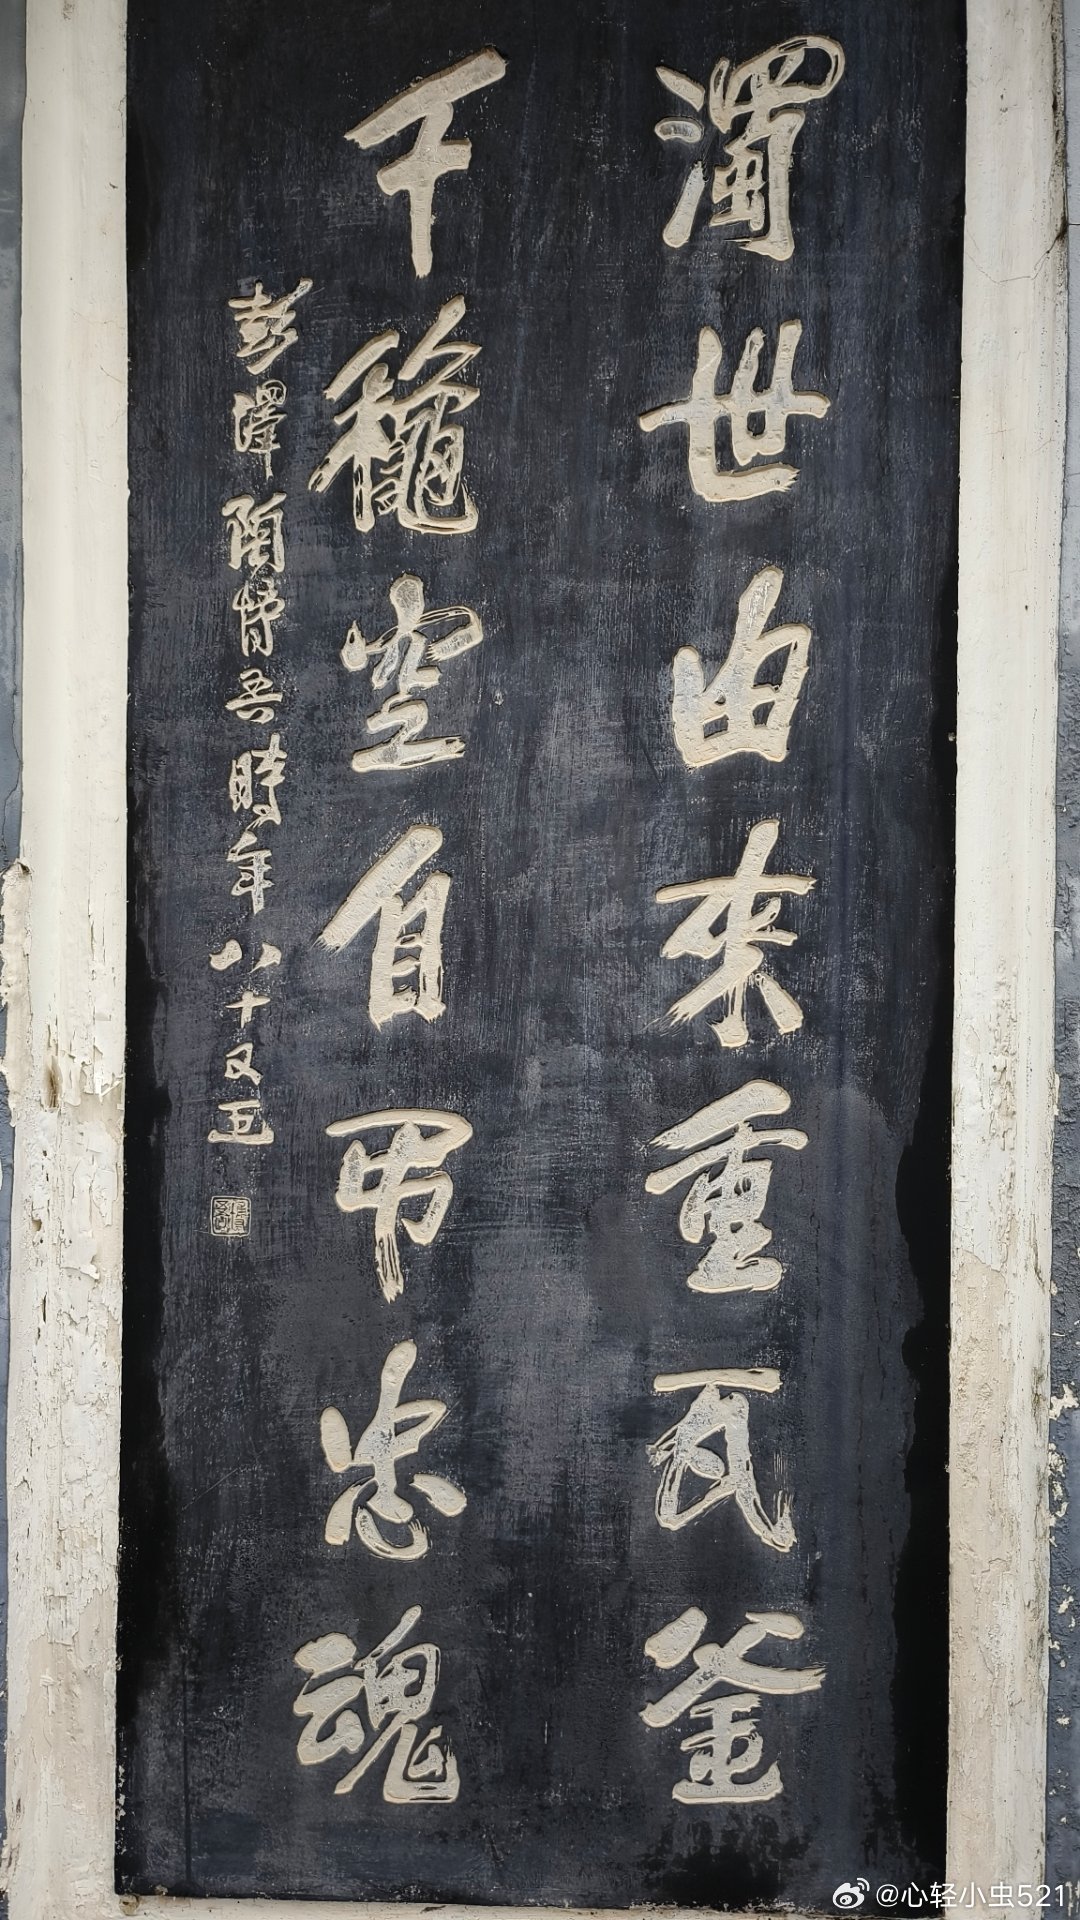 濁世由来重瓦釜
千龝空自弔忠魂
彭澤陶博吾時年八十又五
@心轻小虫521